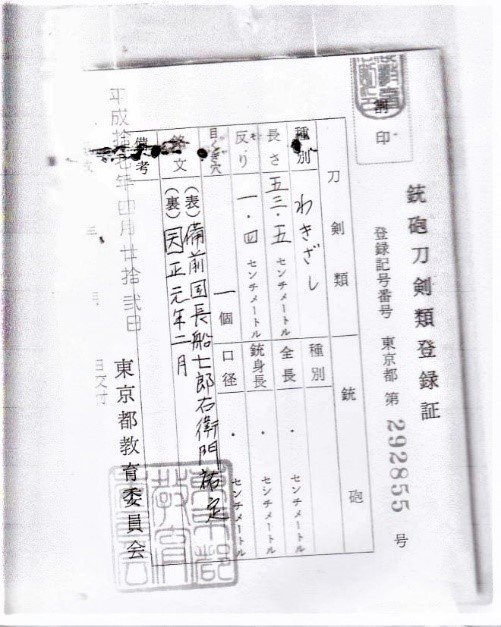 銃砲刀剣類登録証
割印
登録記号番号 東京都 第 292855 号
刀剣類 銃砲
種別 わきざし 種別
長さ 五三・五 センチメートル 全長 ・ センチメートル
反り 一・四 センチメートル 銃身長 ・ センチメートル
目くぎ穴 一個 口径 ・ センチメートル
銘文 (表)備前国長船士郎右衛門祐定
(裏) 正元年二月
備考
平成拾 年四月 拾弐日 交付
東京都教育委員会